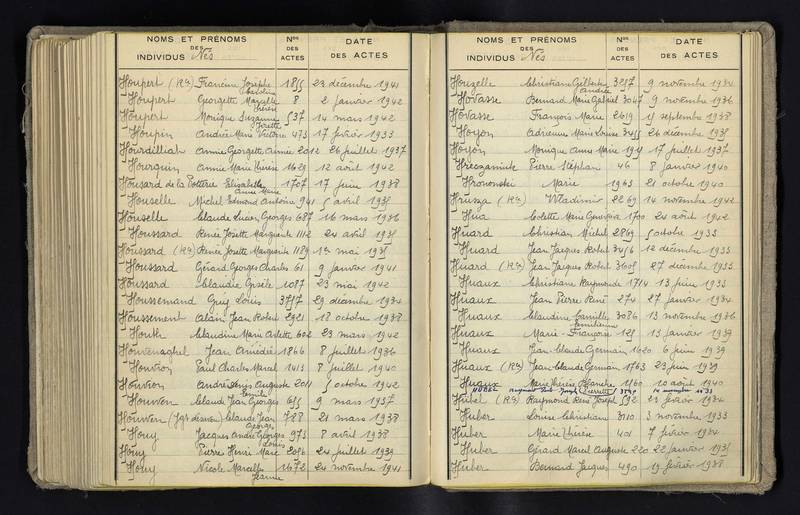 NOMS ET PRÉNOMS
DES
INDIVIDUS Nés
Nos
DES
ACTES
DATE
DES ACTES
Houpert (Rm) Francine Josèphe 1855 23 décembre 1941
Caroline
Houpert Georgette Marcelle 8 2 janvier 1942
Thérèse
Houpert Monique Suzanne 537 14 mars 1942
Josette
Houpin Andrée Marie Victoire 473 17 février 1933
Hourdilliah Annie Georgette Aimée 2012 26 juillet 1937
Hourquin Annie Marie Thérèse 1629 12 août 1942
Housard de la Potterie Elisabeth 1707 17 juin 1938
Anne Marie
Houselle Michel Edmond Antoine 941 5 avril 1935
Houselle Claude Lucien Georges 687 16 mars 1936
Houssard Renée Josette Marguerite 1112 24 avril 1935
Houssard (Rm) Renée Josette Marguerite 1189 1er mai 1935
Houssard Gérard Georges Charles 61 9 janvier 1941
Houssard Claudie Gisèle 1087 23 mai 1942
Houssemand Guy Louis 3757 29 décembre 1934
Houssement Alain Jean Robert 2921 18 octobre 1938
Houth Claudine Marie Arlette 602 23 mars 1942
Houtenaghel Jean Amédée 1866 8 juillet 1936
Houvion Paul Charles Marcel 1413 8 juillet 1940
Houvion André Denis Auguste 2011 5 octobre 1942
Camille
Houven Claude Jean Georges 615 9 mars 1937
Houven (Jgt désaveu) Claude Jean 728 21 mars 1938
George
Houy Jacques André Georges 973 8 avril 1938
Louis
Houy Pierre Henri Marie 2056 24 juillet 1939
Houy Nicole Marcelle 1672 24 novembre 1941
Jeanne
NOMS ET PRÉNOMS
DES
INDIVIDUS Nés
Nos
DES
ACTES
DATE
DES ACTES
Houzelle Christiane Gilberte 3257 9 novembre 1934
Andrée
Hovasse Bernard Marie Gabriel 3047 9 novembre 1936
Hovasse François Marie 2619 15 septembre 1938
Hoyon Adrienne Marie Louise 3455 26 décembre 1935
Hoyon Monique Anne Marie 1957 17 juillet 1937
Pierre Stéphan 46 8 janvier 1940
Hrononski Marie 1963 21 octobre 1940
Hrusza (Rm) Wladimir 2269 14 novembre 1942
Hua Colette Marie Geneviève 1700 24 août 1942
Huard Christian Michel 2869 5 octobre 1933
Huard Jean Jacques Robert 3456 12 décembre 1933
Huard (Rm) Jean Jacques Robert 3605 27 décembre 1933
Huaux Christiane Raymonde 1714 13 juin 1933
Huaux Jean Pierre René 274 27 janvier 1934
Huaux Claudine Camille 3086 13 novembre 1936
Emilienne
Huaux Marie-Françoise 125 13 janvier 1939
Huaux Jean Claude Germain 1620 6 juin 1939
Huaux (Rm) Jean Claude Germain 1763 23 juin 1939
Huaux Marie Thérèse Blanche 1560 10 août 1940
HUBEL Raymond Joseph Pierrette 3290 14 novembre 1933
Hubel (Rm) Raymond René Joseph 592 23 février 1934
Huber Louise Christiane 3110 3 novembre 1933
Huber Marie Thérèse 401 7 février 1934
Huber Gérard Marcel Auguste 220 22 janvier 1935
Huber Bernard Jacques 490 19 février 1938